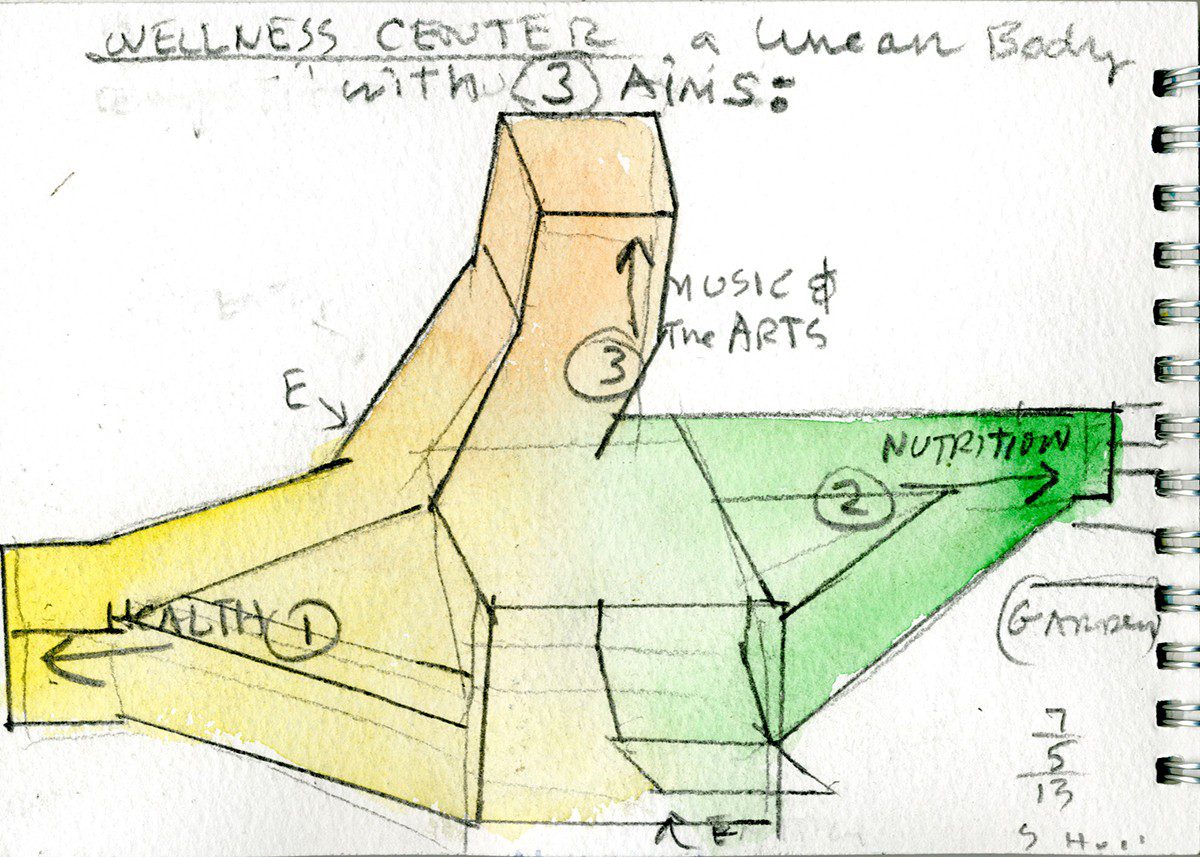 WELLNESS CENTER a Linear Body
with 3 Aims:
MUSIC &
The ARTS
3
E
NUTRITION
2
HEALTH 1
(GARDEN)
7
5
13
E
S Holl